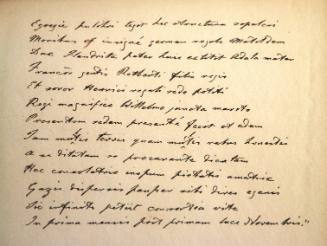 Egregie pulchri tegit hec structura sepulcri
Moribus insigne germen regale Matildem
Dux Flandrita pater huic extitit Adala mater
Francor gentis Rotberti filia regis
Et soror Henrici regali sede potiti
Regi magnifico Willelmo juncta marito
Presentem sedem presente fecit et edem
Tam multis terris quam multis rebus honestis
A se ditatam se procurante dicatam
Hec consolatrix inopum pietatis amatrix
Gazis dispersis pauper sibi dives egenis
Sic infinite petiit consortia vite
In prima mensis post primam luce Novembris."